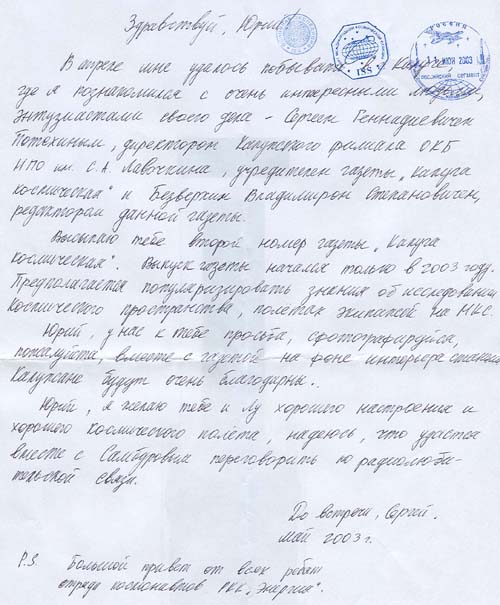 Здравствуй, Юрий!
РОССИЯ
ИЮН 2003
РОССИЙСКИЙ СЕГМЕНТ
ISS
В апреле мне удалось побывать в Калуге,
где я познакомился с очень интересными людьми,
энтузиастами своего дела - Сергеем Геннадиевичем
Потехиным, директором Калужского филиала ОКБ
НПО им. С.А. Лавочкина, учредителем газеты „Калуга
космическая" и Безверхим Владимиром Степановичем,
редактором данной газеты.
Высылаю тебе второй номер газеты „Калуга
космическая". Выпуск газеты начался только в 2003 году.
Предполагается популяризировать знания об исследовании
космического пространства, полётах экипажей на МКС.
Юрий, у нас к тебе просьба, сфотографируйся,
пожалуйста, вместе с газетой на фоне интерьера станции
Калужане будут очень благодарны.
Юрий, я желаю тебе и Лу хорошего настроения и
хорошего космического полёта, надеюсь, что удастся
вместе с Самодровым переговорить по радиолюби-
тельской связи.
До встречи, Сергей.
Май 2003 г.
P.S. Большой привет от всех ребят
отряда космонавтов РКК „Энергия".